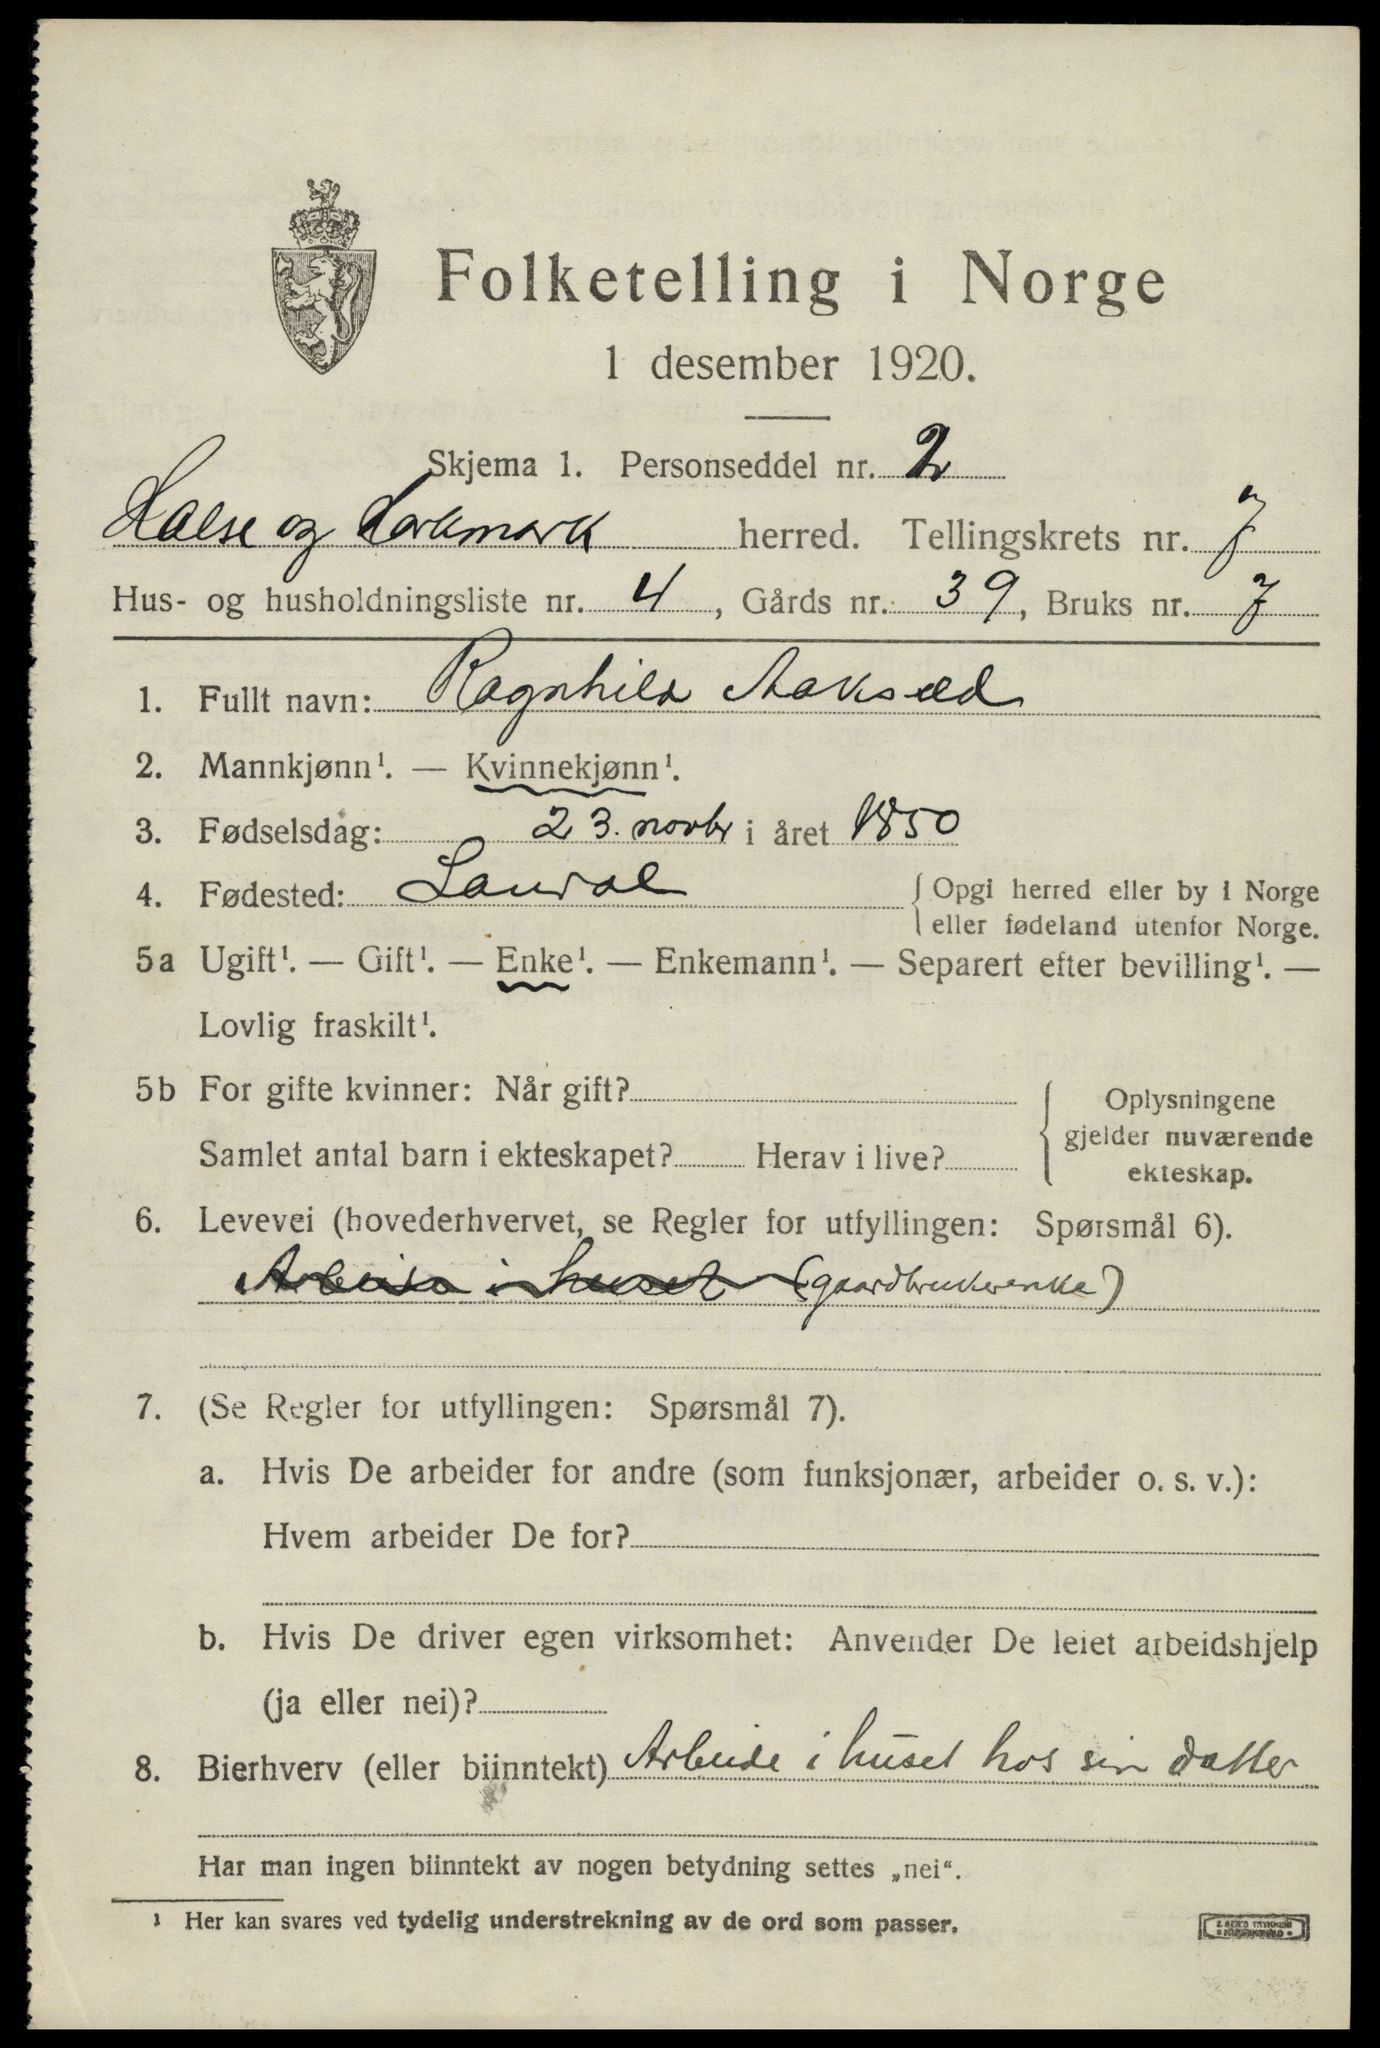 Folketelling i Norge
1 desember 1920.
Skjema 1. Personseddel nr. 2
Halse og Harkmark herred. Tellingskrets nr. 7
Hus- og husholdningsliste nr. 4, Gårds nr. 39, Bruks nr. 7
1. Fullt navn: Ragnhild
2. Mannkjønn¹. — Kvinnekjønn¹.
3. Fødselsdag: 23. novbr i året 1850
4. Fødested: Laudal { Opgi herred eller by i Norge
eller fødeland utenfor Norge.
5a Ugift¹. — Gift¹. — Enke¹. — Enkemann¹. — Separert efter bevilling¹. —
Lovlig fraskilt¹.
5b For gifte kvinner: Når gift?
Samlet antal barn i ekteskapet? Herav i live?
{ Oplysningene
gjelder nuværende
ekteskap.
6. Levevei (hovederhvervet, se Regler for utfyllingen: Spørsmål 6).
Arbeide i huset (gaardbrukerenke)
7. (Se Regler for utfyllingen: Spørsmål 7).
a. Hvis De arbeider for andre (som funksjonær, arbeider o. s. v.):
Hvem arbeider De for?
b. Hvis De driver egen virksomhet: Anvender De leiet arbeidshjelp
(ja eller nei)?
8. Bierhverv (eller biinntekt) Arbeide i huset hos sin datter
Har man ingen biinntekt av nogen betydning settes „nei“.
¹ Her kan svares ved tydelig understrekning av de ord som passer.